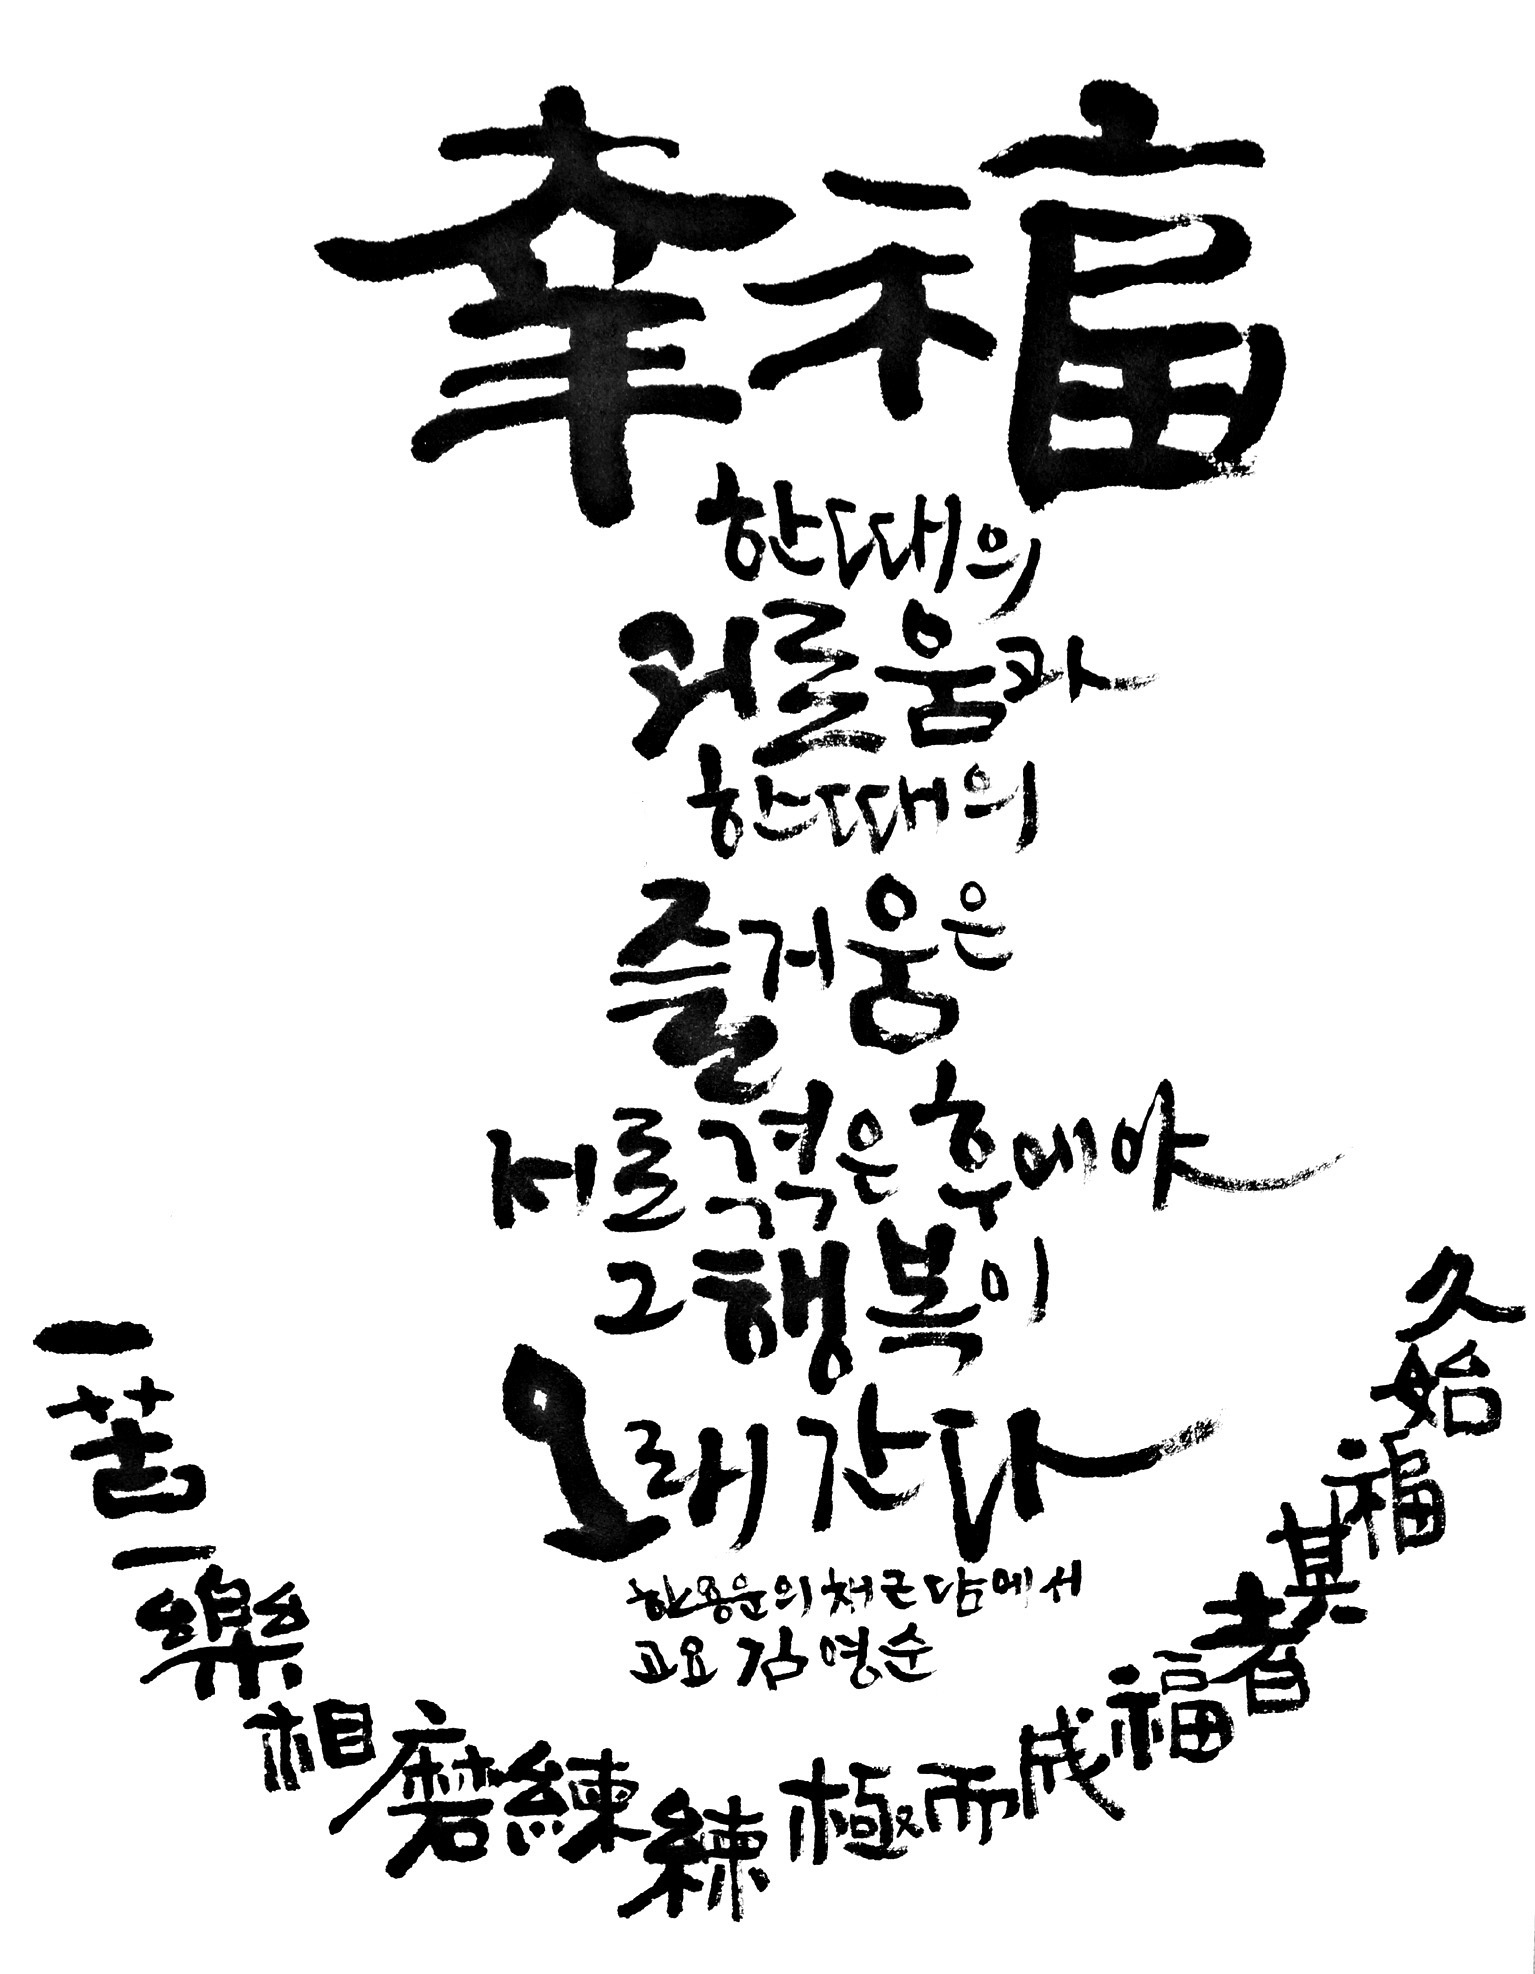 幸福
한때의
괴로움과
한때의
즐거움은
서로 겪은 후에야
그 행복이
오래 간다
한용운의 채근담에서
고요 김영순
一苦一樂相磨練練極而成福者其福始久